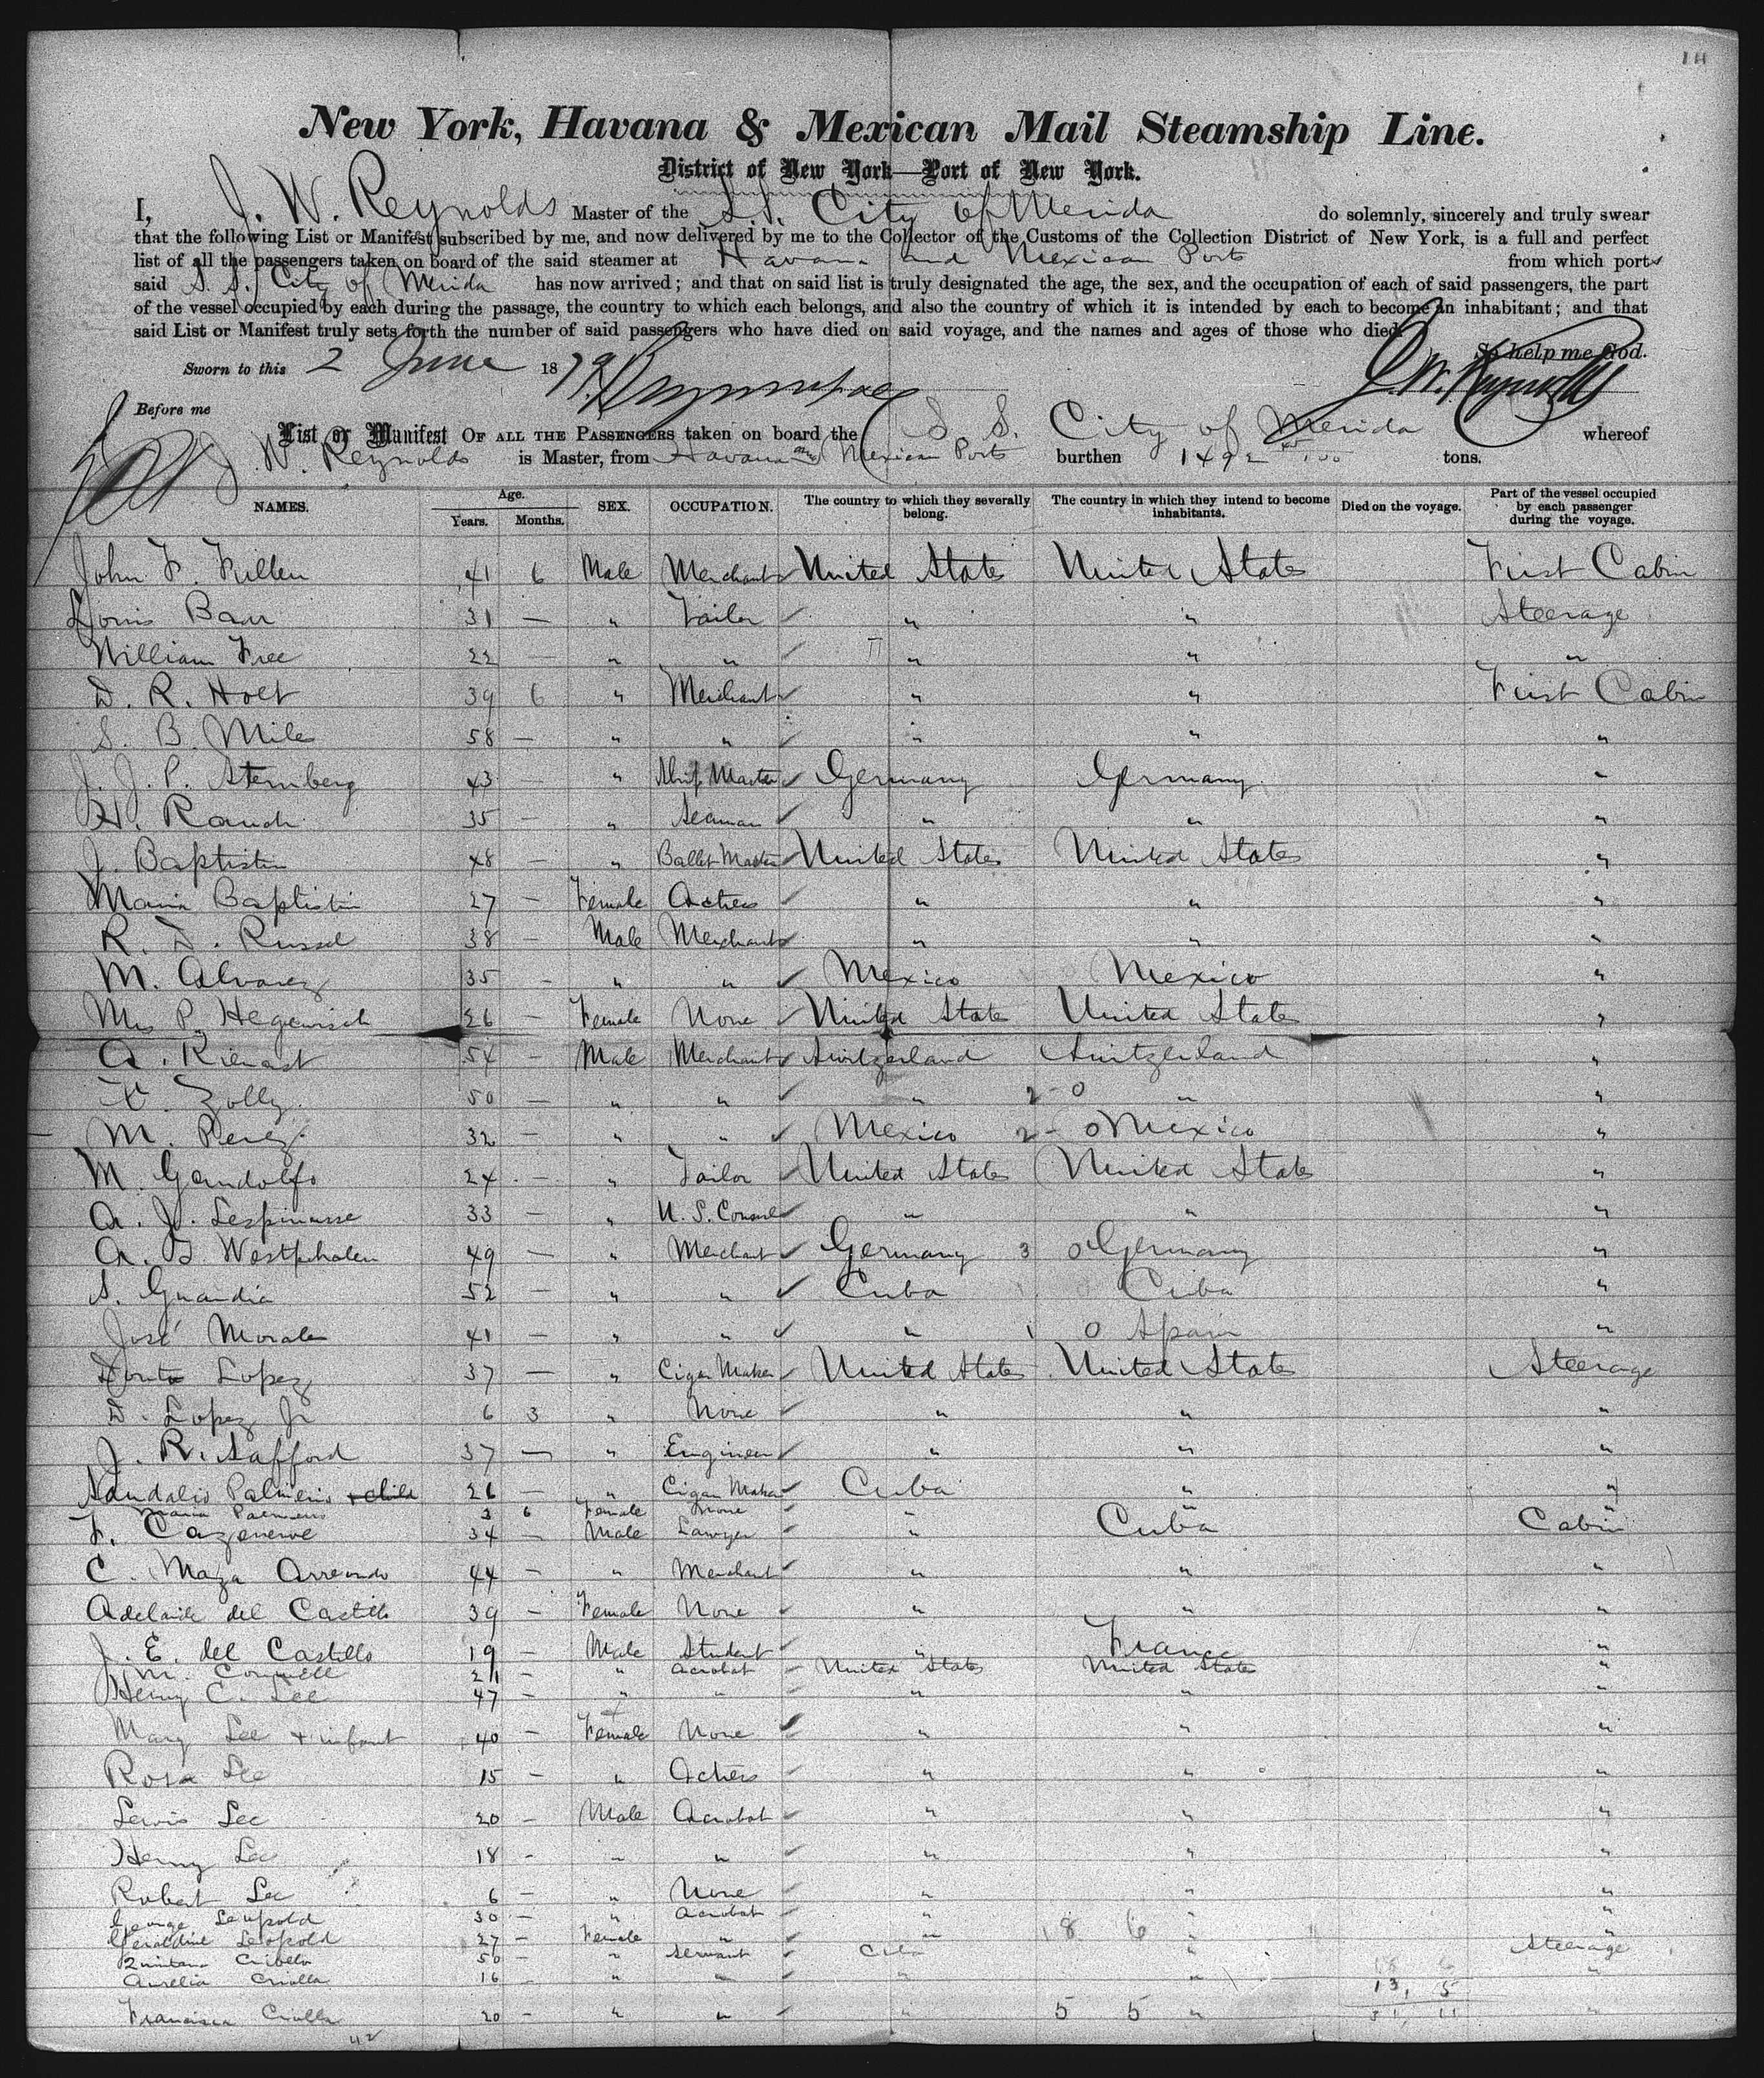 New York, Havana & Mexican Mail Steamship Line.
District of New York—Port of New York.
I, J. W. Reynolds Master of the S.S. City of Merida do solemnly, sincerely and truly swear
that the following List or Manifest subscribed by me, and now delivered by me to the Collector of the Customs of the Collection District of New York, is a full and perfect
list of all the passengers taken on board of the said steamer at Havana and Mexican Ports from which ports
said S. S. City of Merida has now arrived; and that on said list is truly designated the age, the sex, and the occupation of each of said passengers, the part
of the vessel occupied by each during the passage, the country to which each belongs, and also the country of which it is intended by each to become an inhabitant; and that
said List or Manifest truly sets forth the number of said passengers who have died on said voyage, and the names and ages of those who died.
So help me God.
Sworn to this 2 June 1879 J. W. Reynolds
Before me
List or Manifest OF ALL THE PASSENGERS taken on board the S. S. City of Merida whereof
J. W. Reynolds is Master, from Havana and Mexican Ports burthen 1492 tons.
NAMES. Age. Years. Months. SEX. OCCUPATION. The country to which they severally belong. The country in which they intend to become inhabitants. Died on the voyage. Part of the vessel occupied by each passenger during the voyage.
John F. Fullen 41 6 Male Merchant United States United States First Cabin
Louis Baur 31 — " Tailor " " Steerage
William Free 22 — " " " " "
D. R. Holt 39 6 " Merchant " " First Cabin
S. B. Mile 58 — " " " " "
J. J. P. Sternberg 43 — " Ship Master Germany Germany "
H. Rauch 35 — " Seaman " " "
J. Baptistin 48 — " Ballet Master United States United States "
Maria Baptistin 27 — Female Actress " " "
R. D. Russel 38 — Male Merchant " " "
M. Alvarez 35 — " " Mexico Mexico "
Mrs P. Hegewisch 26 — Female None United States United States "
A. Rienast 54 — Male Merchant Switzerland Switzerland "
Zolly 50 — " " " 2-0 " "
M. Perez 32 — " " Mexico 2-0 Mexico "
M. Gandolfo 24 — " Tailor United States United States "
A. J. Lespinasse 33 — " U. S. Consul " " "
A. Westphalen 49 — " Merchant Germany 3 0 Germany "
S. Guardia 52 — " " Cuba Cuba "
José Morales 41 — " " " 1 0 Spain "
Lopez 37 — " Cigar Maker United States United States Steerage
D. Lopez Jr 6 3 " None " " "
J. R. Safford 37 — " Engineer " " "
Sandalio Palmeiro + child 26 — " Cigar Maker Cuba " "
Maria Palmeiro 3 6 Female None " " "
F. Cazeneuve 34 — Male Lawyer " Cuba Cabin
C. Maza Arredondo 44 — " Merchant " " "
Adelaide del Castillo 39 — Female None " " "
J. E. del Castillo 19 — Male Student " France "
J. M. Connell 21 — " Acrobat United States United States "
Henry C. Lee 47 — " " " " "
Mary Lee + infant 40 — Female None " " "
Rosa Lee 15 — " Actress " " "
Lewis Lee 20 — Male Acrobat " " "
Henry Lee 18 - " " " " "
Robert Lee 6 — " None " " "
George Leopold 30 — " Acrobat " " "
Geraldine Leopold 27 — Female " " 18 6 " "
Criollo 50 — " Servant Cuba " Steerage
Aurelia Criolla 16 — " " " " 13, 5 "
Francisca Criolla 20 — " " " 5 5 " 31, 11 "
42